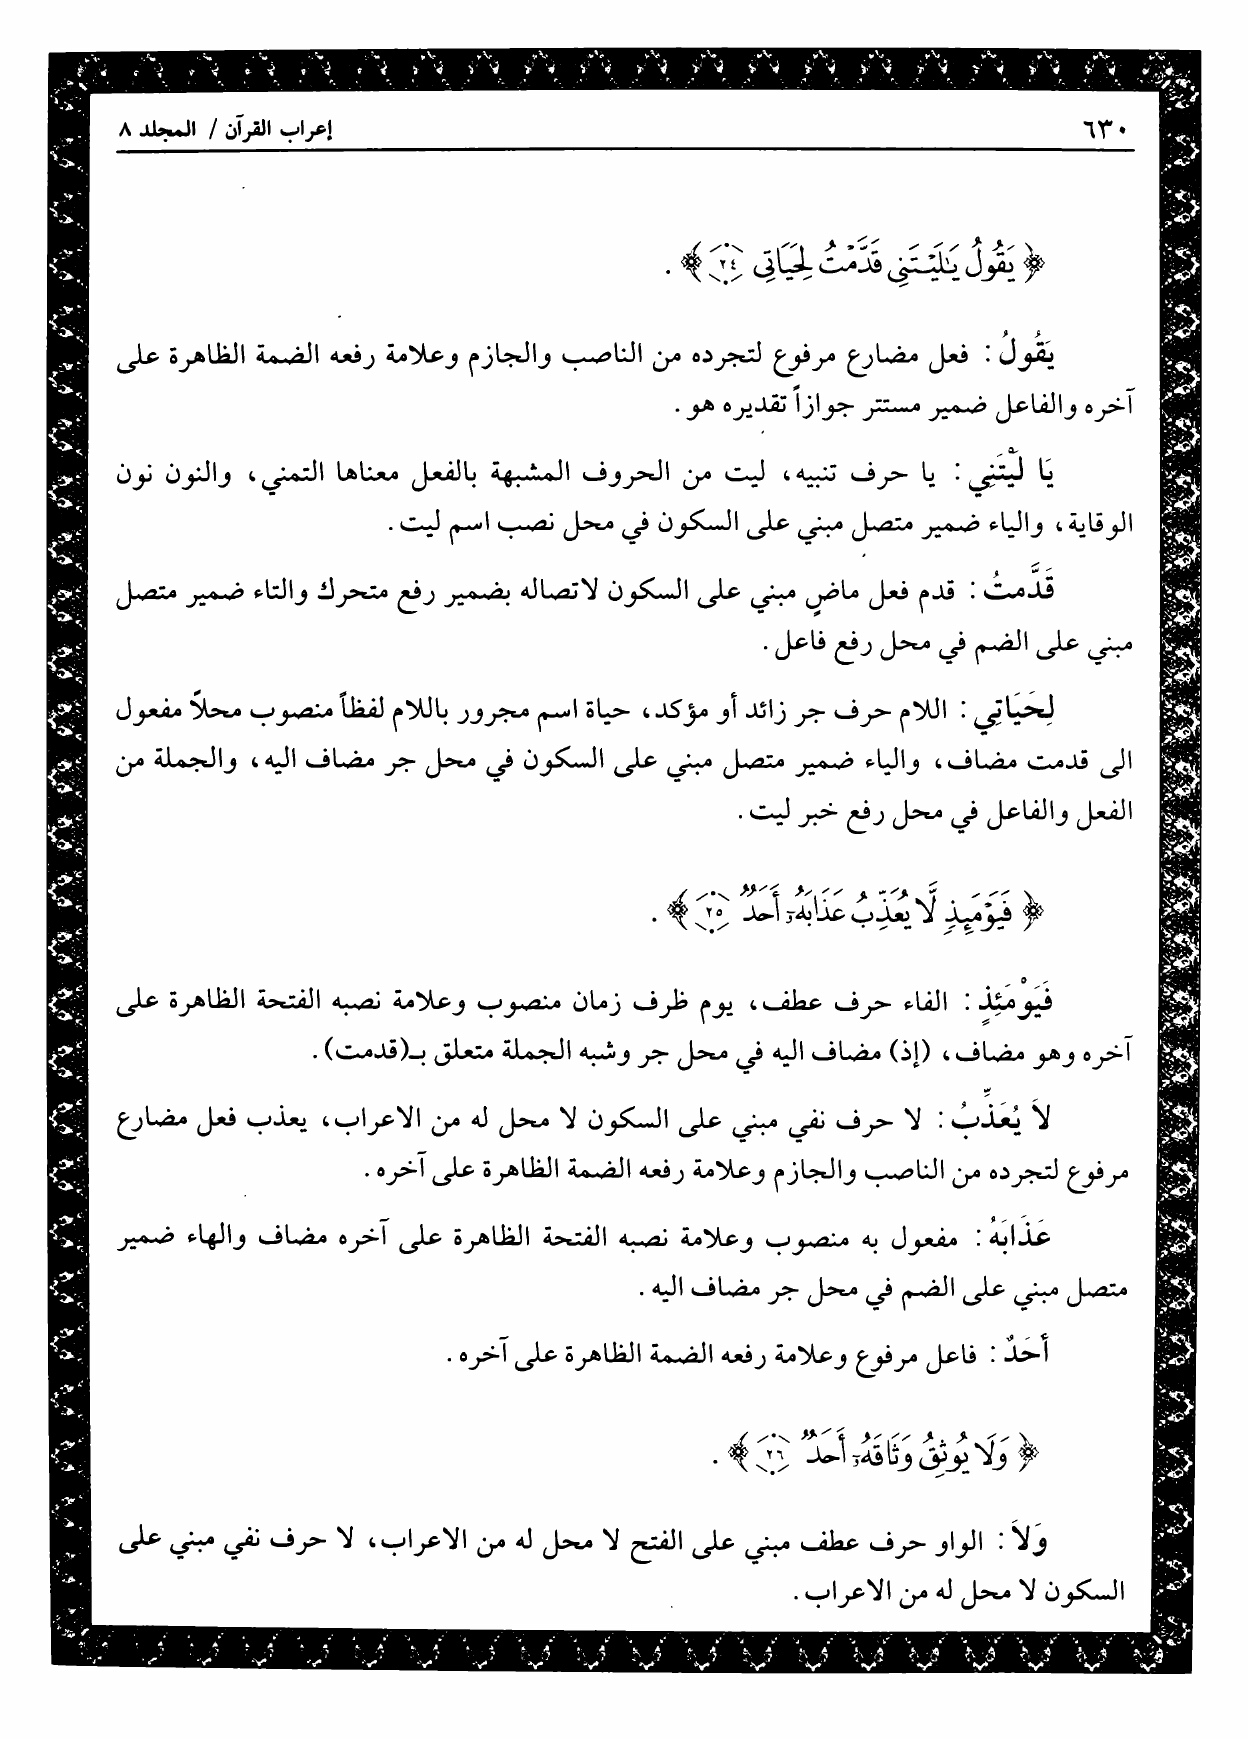 ٦٣٠
إعراب القرآن / المجلد ٨
﴿ يَقُولُ يَٰلَيْتَنِى قَدَّمْتُ لِحَيَاتِى ٢٤ ﴾ .
يَقُولُ : فعل مضارع مرفوع لتجرده من الناصب والجازم وعلامة رفعه الضمة الظاهرة على
آخره والفاعل ضمير مستتر جوازاً تقديره هو .
يَا لَيْتَنِي : يا حرف تنبيه، ليت من الحروف المشبهة بالفعل معناها التمني، والنون نون
الوقاية، والياء ضمير متصل مبني على السكون في محل نصب اسم ليت .
قَدَّمتُ : قدم فعل ماضٍ مبني على السكون لاتصاله بضمير رفع متحرك والتاء ضمير متصل
مبني على الضم في محل رفع فاعل .
لِحَيَاتِي : اللام حرف جر زائد أو مؤكد، حياة اسم مجرور باللام لفظاً منصوب محلاً مفعول
الى قدمت مضاف، والياء ضمير متصل مبني على السكون في محل جر مضاف اليه، والجملة من
الفعل والفاعل في محل رفع خبر ليت .
﴿ فَيَوْمَئِذٍ لَّا يُعَذِّبُ عَذَابَهُۥٓ أَحَدٌ ٢٥ ﴾ .
فَيَوْمَئِذٍ : الفاء حرف عطف، يوم ظرف زمان منصوب وعلامة نصبه الفتحة الظاهرة على
آخره وهو مضاف، (إذ) مضاف اليه في محل جر وشبه الجملة متعلق بـ(قدمت) .
لاَ يُعَذِّبُ : لا حرف نفي مبني على السكون لا محل له من الاعراب، يعذب فعل مضارع
مرفوع لتجرده من الناصب والجازم وعلامة رفعه الضمة الظاهرة على آخره .
عَذَابَهُ : مفعول به منصوب وعلامة نصبه الفتحة الظاهرة على آخره مضاف والهاء ضمير
متصل مبني على الضم في محل جر مضاف اليه .
أَحَدٌ : فاعل مرفوع وعلامة رفعه الضمة الظاهرة على آخره .
﴿ وَلَا يُوثِقُ وَثَاقَهُۥٓ أَحَدٌ ٢٦ ﴾ .
وَلاَ : الواو حرف عطف مبني على الفتح لا محل له من الاعراب، لا حرف نفي مبني على
السكون لا محل له من الاعراب .